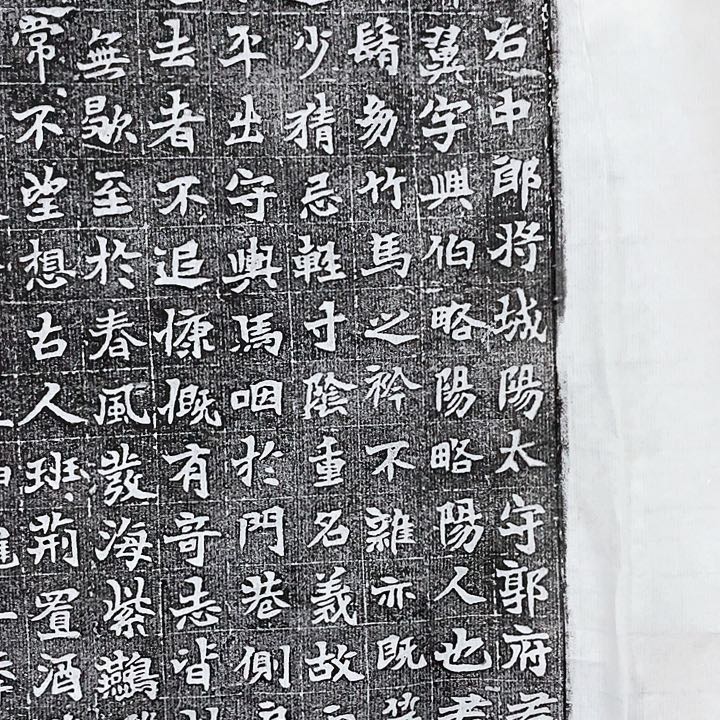 右中郎将城陽太守郭府君
翼字興伯略陽略陽人也君
髫匆竹馬之衿不雜亦既
少猜忌輕寸陰重名義故
平出守輿馬咽於門巷側
去者不追慷慨有竒志皆
無歇至於春風發海紫鷰
常不望想古人班荆置酒